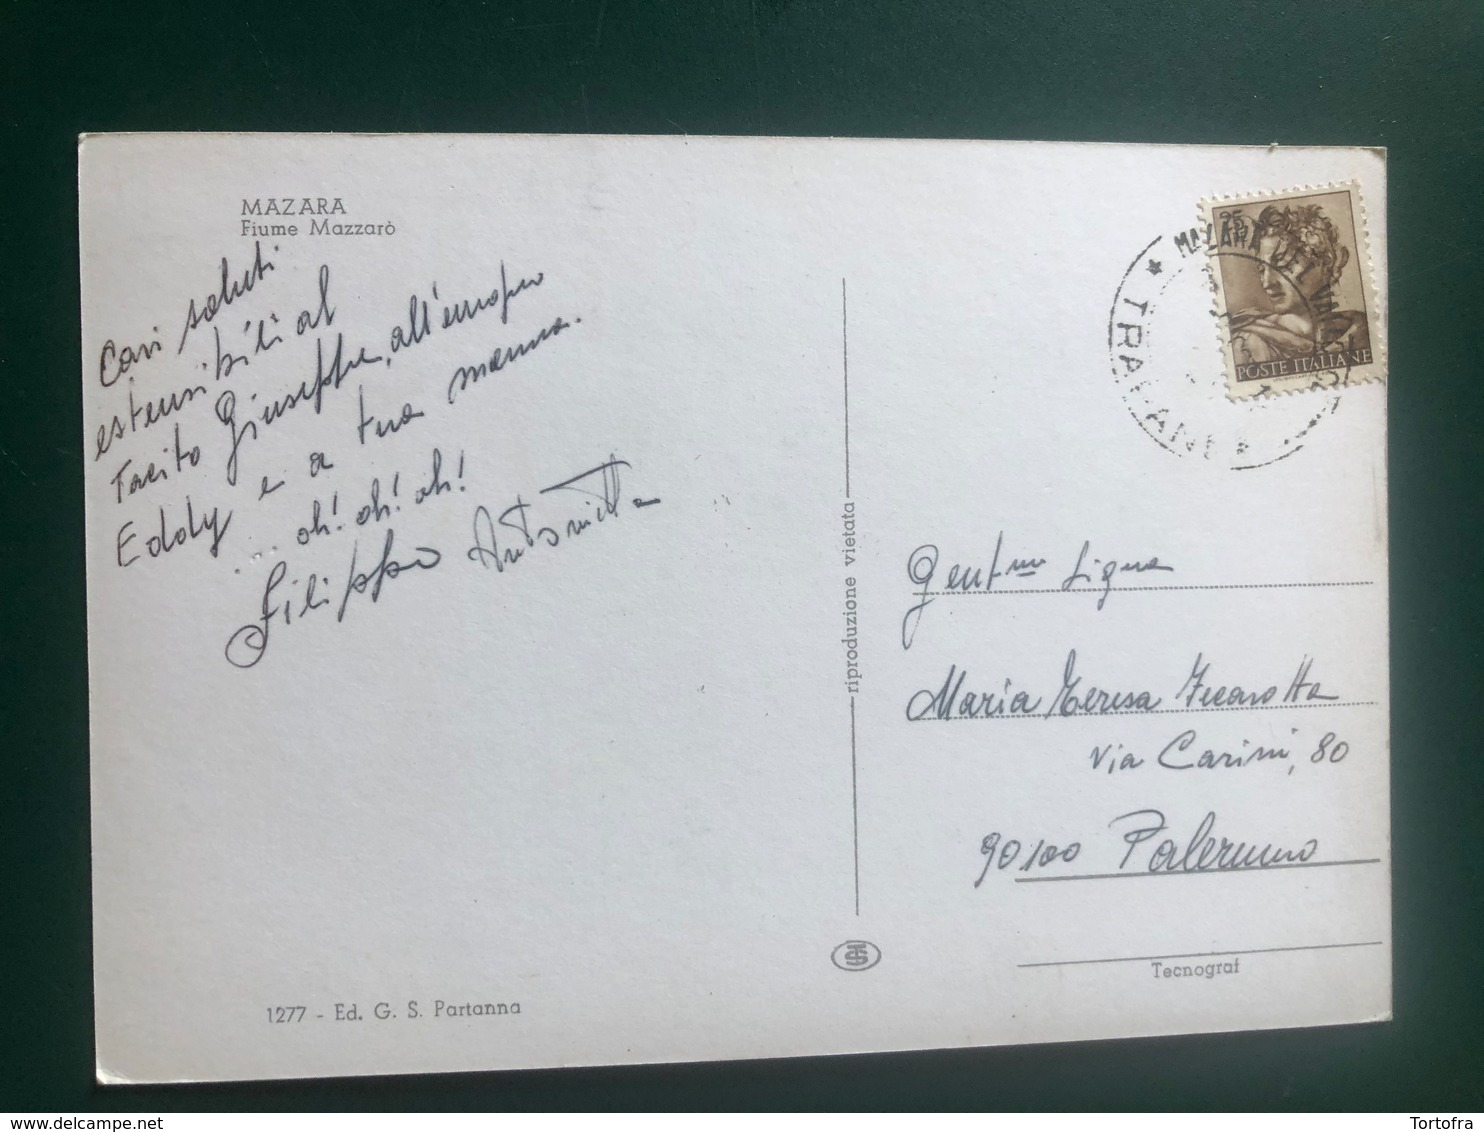 MAZARA
Fiume Mazzarò
Cari saluti
estensibili al
Tacito Giuseppe, all'
Eddy e a tua mamma.
... oh! oh! oh!
Filippo Antonietta
1277 - Ed. G. S. Partanna
riproduzione vietata
MAZARA DEL VALLO
* TRAPANI *
25
POSTE ITALIANE
Gent.ma Sig.na
Maria Teresa Ficarotta
Via Carini, 80
90100 Palermo
Tecnograf
Tortofra
delcampe.net